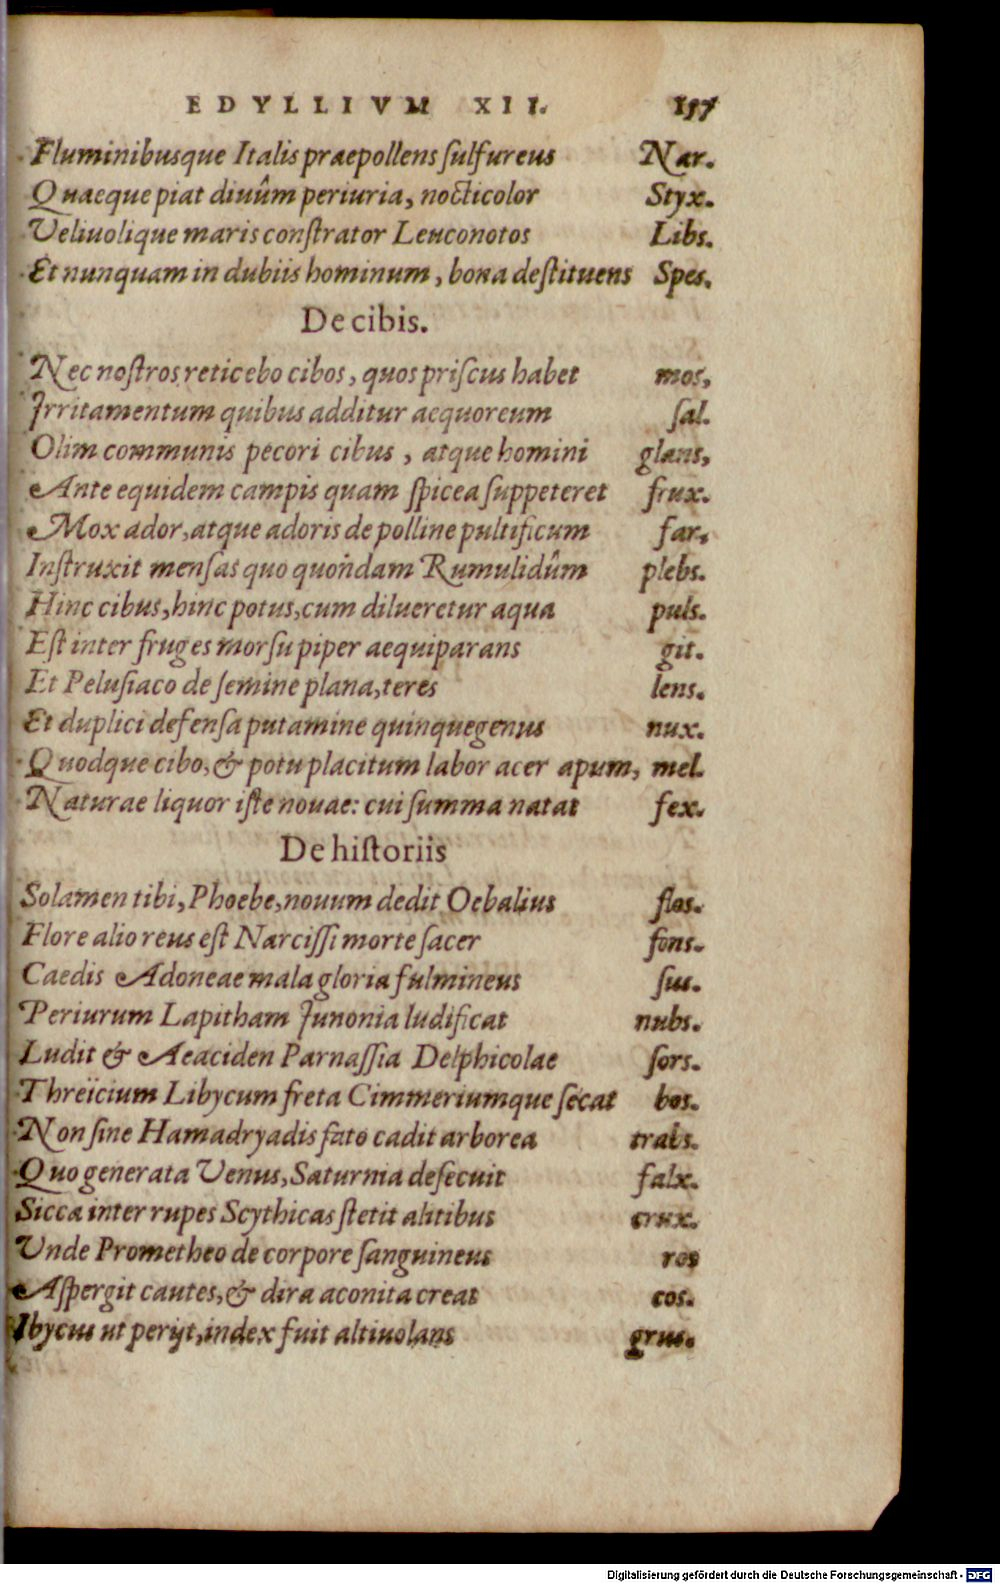 EDYLLIVM XII. 157
Fluminibusque Italis praepollens sulfureus Nar.
Quaeque piat diuûm periuria, nocticolor Styx.
Veliuolique maris constrator Leuconotos Libs.
Et nunquam in dubiis hominum, bona destituens Spes.
De cibis.
Nec nostros reticebo cibos, quos priscus habet mos,
Irritamentum quibus additur aequoreum sal.
Olim communis pecori cibus, atque homini glans,
Ante equidem campis quam spicea suppeteret frux.
Mox ador, atque adoris de polline pultificum far,
Instruxit mensas quo quondam Rumulidûm plebs.
Hinc cibus, hinc potus, cum dilueretur aqua puls.
Est inter fruges morsu piper aequiparans git.
Et Pelusiaco de semine plana, teres lens.
Et duplici defensa putamine quinquegenus nux.
Quodque cibo, & potu placitum labor acer apum, mel.
Naturae liquor iste nouae: cui summa natat fex.
De historiis
Solamen tibi, Phoebe, nouum dedit Oebalius flos.
Flore alio reus est Narcissi morte sacer fons.
Caedis Adoneae mala gloria fulmineus sus.
Periurum Lapitham Iunonia ludificat nubs.
Ludit & Aeaciden Parnassia Delphicolae sors.
Threïcium Libycum freta Cimmeriumque secat bos.
Non sine Hamadryadis fato cadit arborea trabs.
Quo generata Venus, Saturnia desecuit falx.
Sicca inter rupes Scythicas stetit alitibus crux.
Vnde Prometheo de corpore sanguineus ros
Aspergit cautes, & dira aconita creat cos.
Ibycus ut perijt, index fuit altiuolans grus.
Digitalisierung gefördert durch die Deutsche Forschungsgemeinschaft - DFG